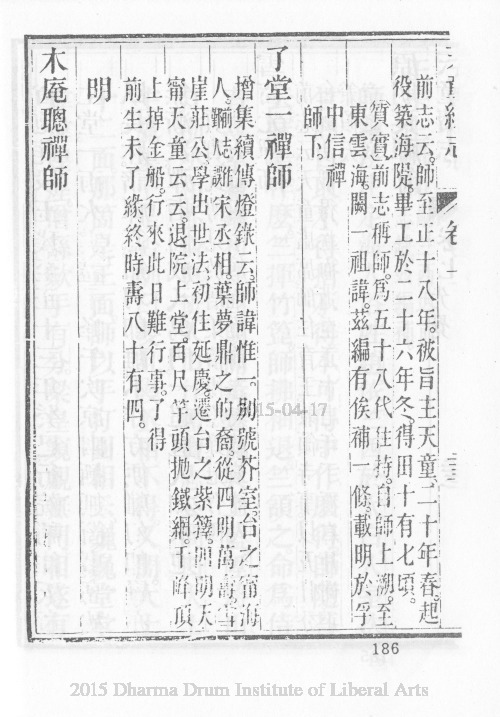 天童續志 卷上
前志云。師至正十八年。被旨主天童。二十年春。起
役築海隄。畢工於二十六年冬。得田十有七頃。
質實。前志稱師。為五十八代住持。自師上溯。至
東雲海。闕一祖諱。茲編有俟補一條。載明於孚
中信禪
師下。
了堂一禪師
增集續傳燈錄云。師諱惟一。別號芥室。台之甯海
人。宋丞相。葉夢鼎之的裔。從四明萬壽。雪
崖莊公學出世法。初住延慶。遷台之紫籜。四明天
甯天童云云。退院上堂。百尺竿頭拋鐵網。千峰頂
上掉金船。行來此日難行事。了得
前生未了緣終時壽八十有四。
明
木庵聰禪師
2015-04-17
186
2015 Dharma Drum Institute of Liberal Arts